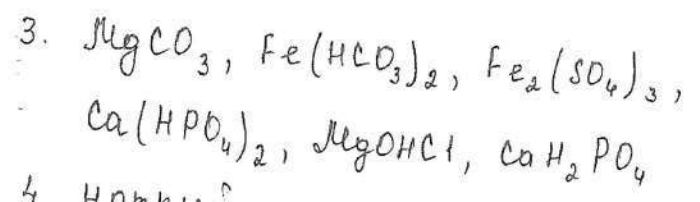 3. MgCO₃, Fe(HCO₃)₂, Fe₂(SO₄)₃,
Ca(HPO₄)₂, MgOHCl, CaH₂PO₄
4.